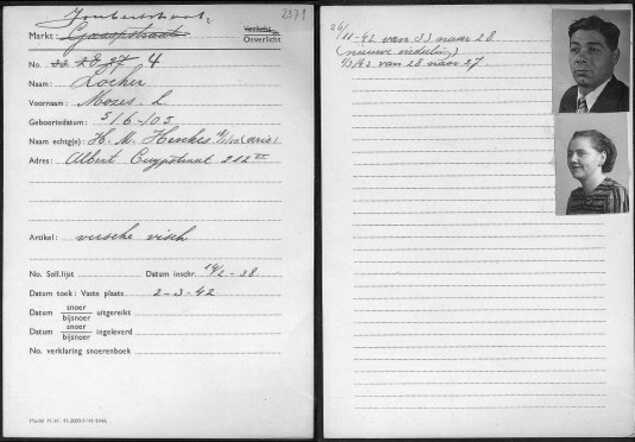 Joubertstraat.
2371
Markt: Gaaspstraat
Verlicht
Onverlicht
No. 33 28 27 4
Naam: Locher
Voornaam: Mozes. L.
Geboortedatum: 5/6-'05
Naam echtg(e): H. M. Henkes (arie)
Adres: Albert Cuypstraat 212 II
Artikel: versche visch
No. Soll.lijst Datum inschr. 14/2-38
Datum toek: Vaste plaats 2-3-42
Datum snoer bijsnoer uitgereikt
Datum snoer bijsnoer ingeleverd
No. verklaring snoerenboek
26/11-42 van 33 naar 28
(nieuwe indeling)
1/3/43 van 28 naar 27.